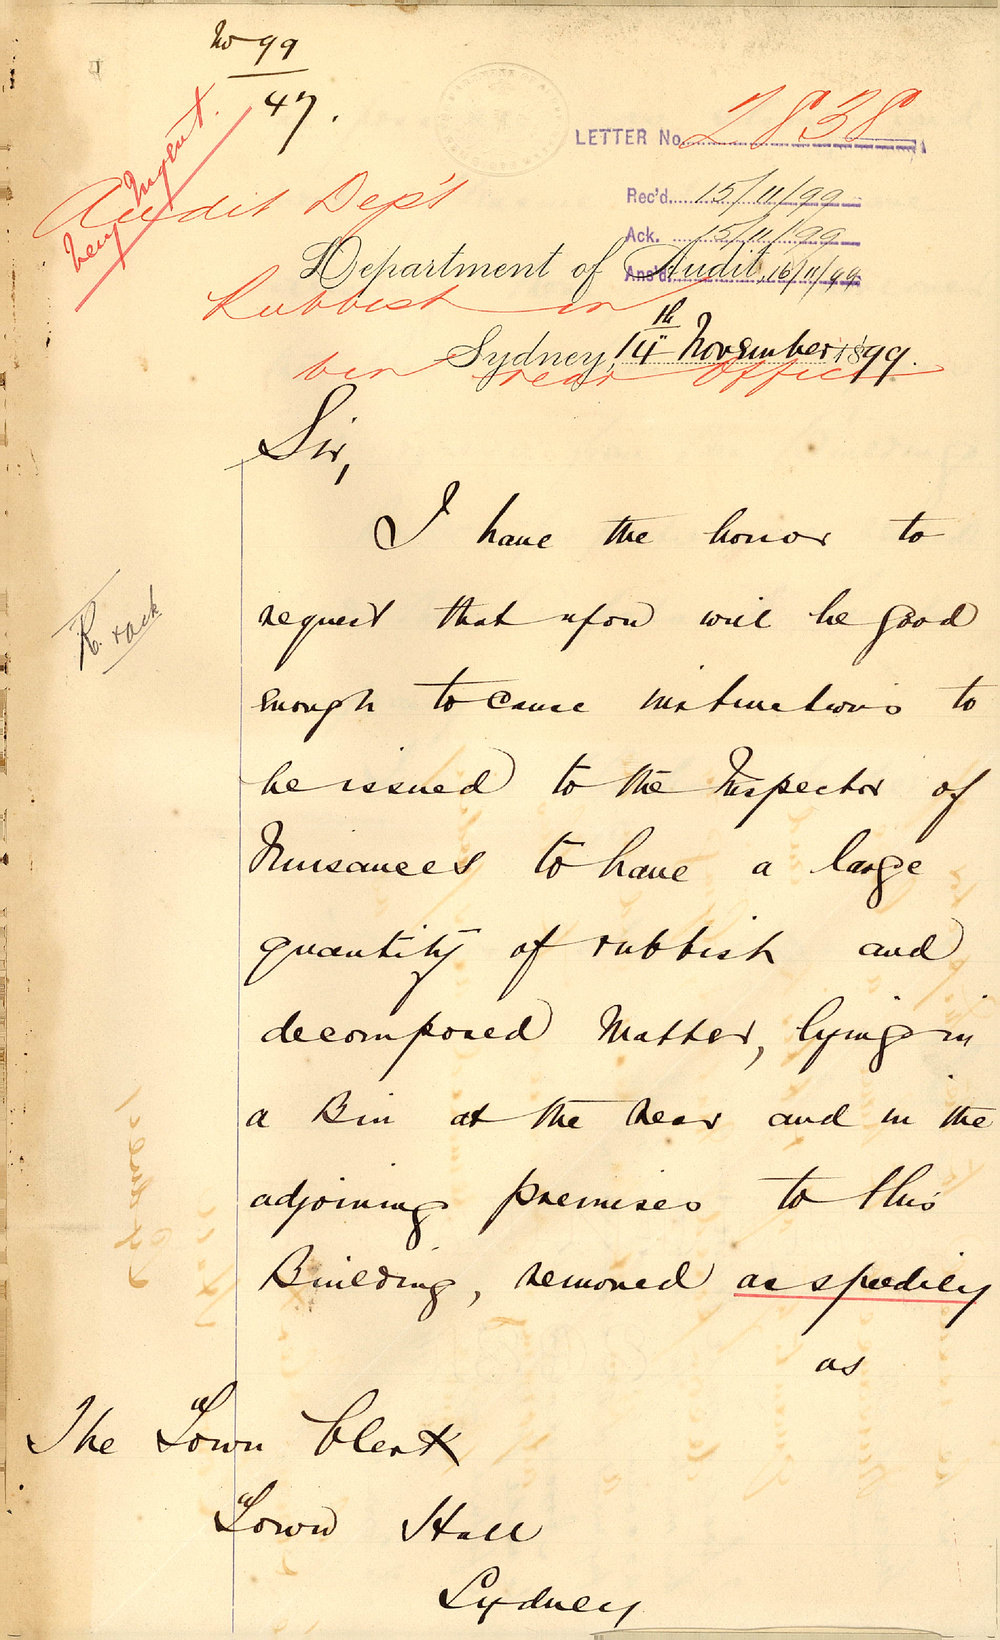 No 99
47.
LETTER No 2838
Rec'd. 15/11/99
Ack. 15/11/99
Ans'd. 16/11/99
Very Urgent.
Audit Dep't
Department of Audit,
Rubbish in
Sydney, 14th November 1899.
bin rear Office
Sir,
I have the honor to
request that you will be good
enough to cause instructions to
be issued to the Inspector of
Nuisances to have a large
quantity of rubbish and
decomposed Matter, lying in
a Bin at the rear and in the
adjoining premises to this
Building, removed as speedily
as
The Town Clerk
Town Hall
Sydney